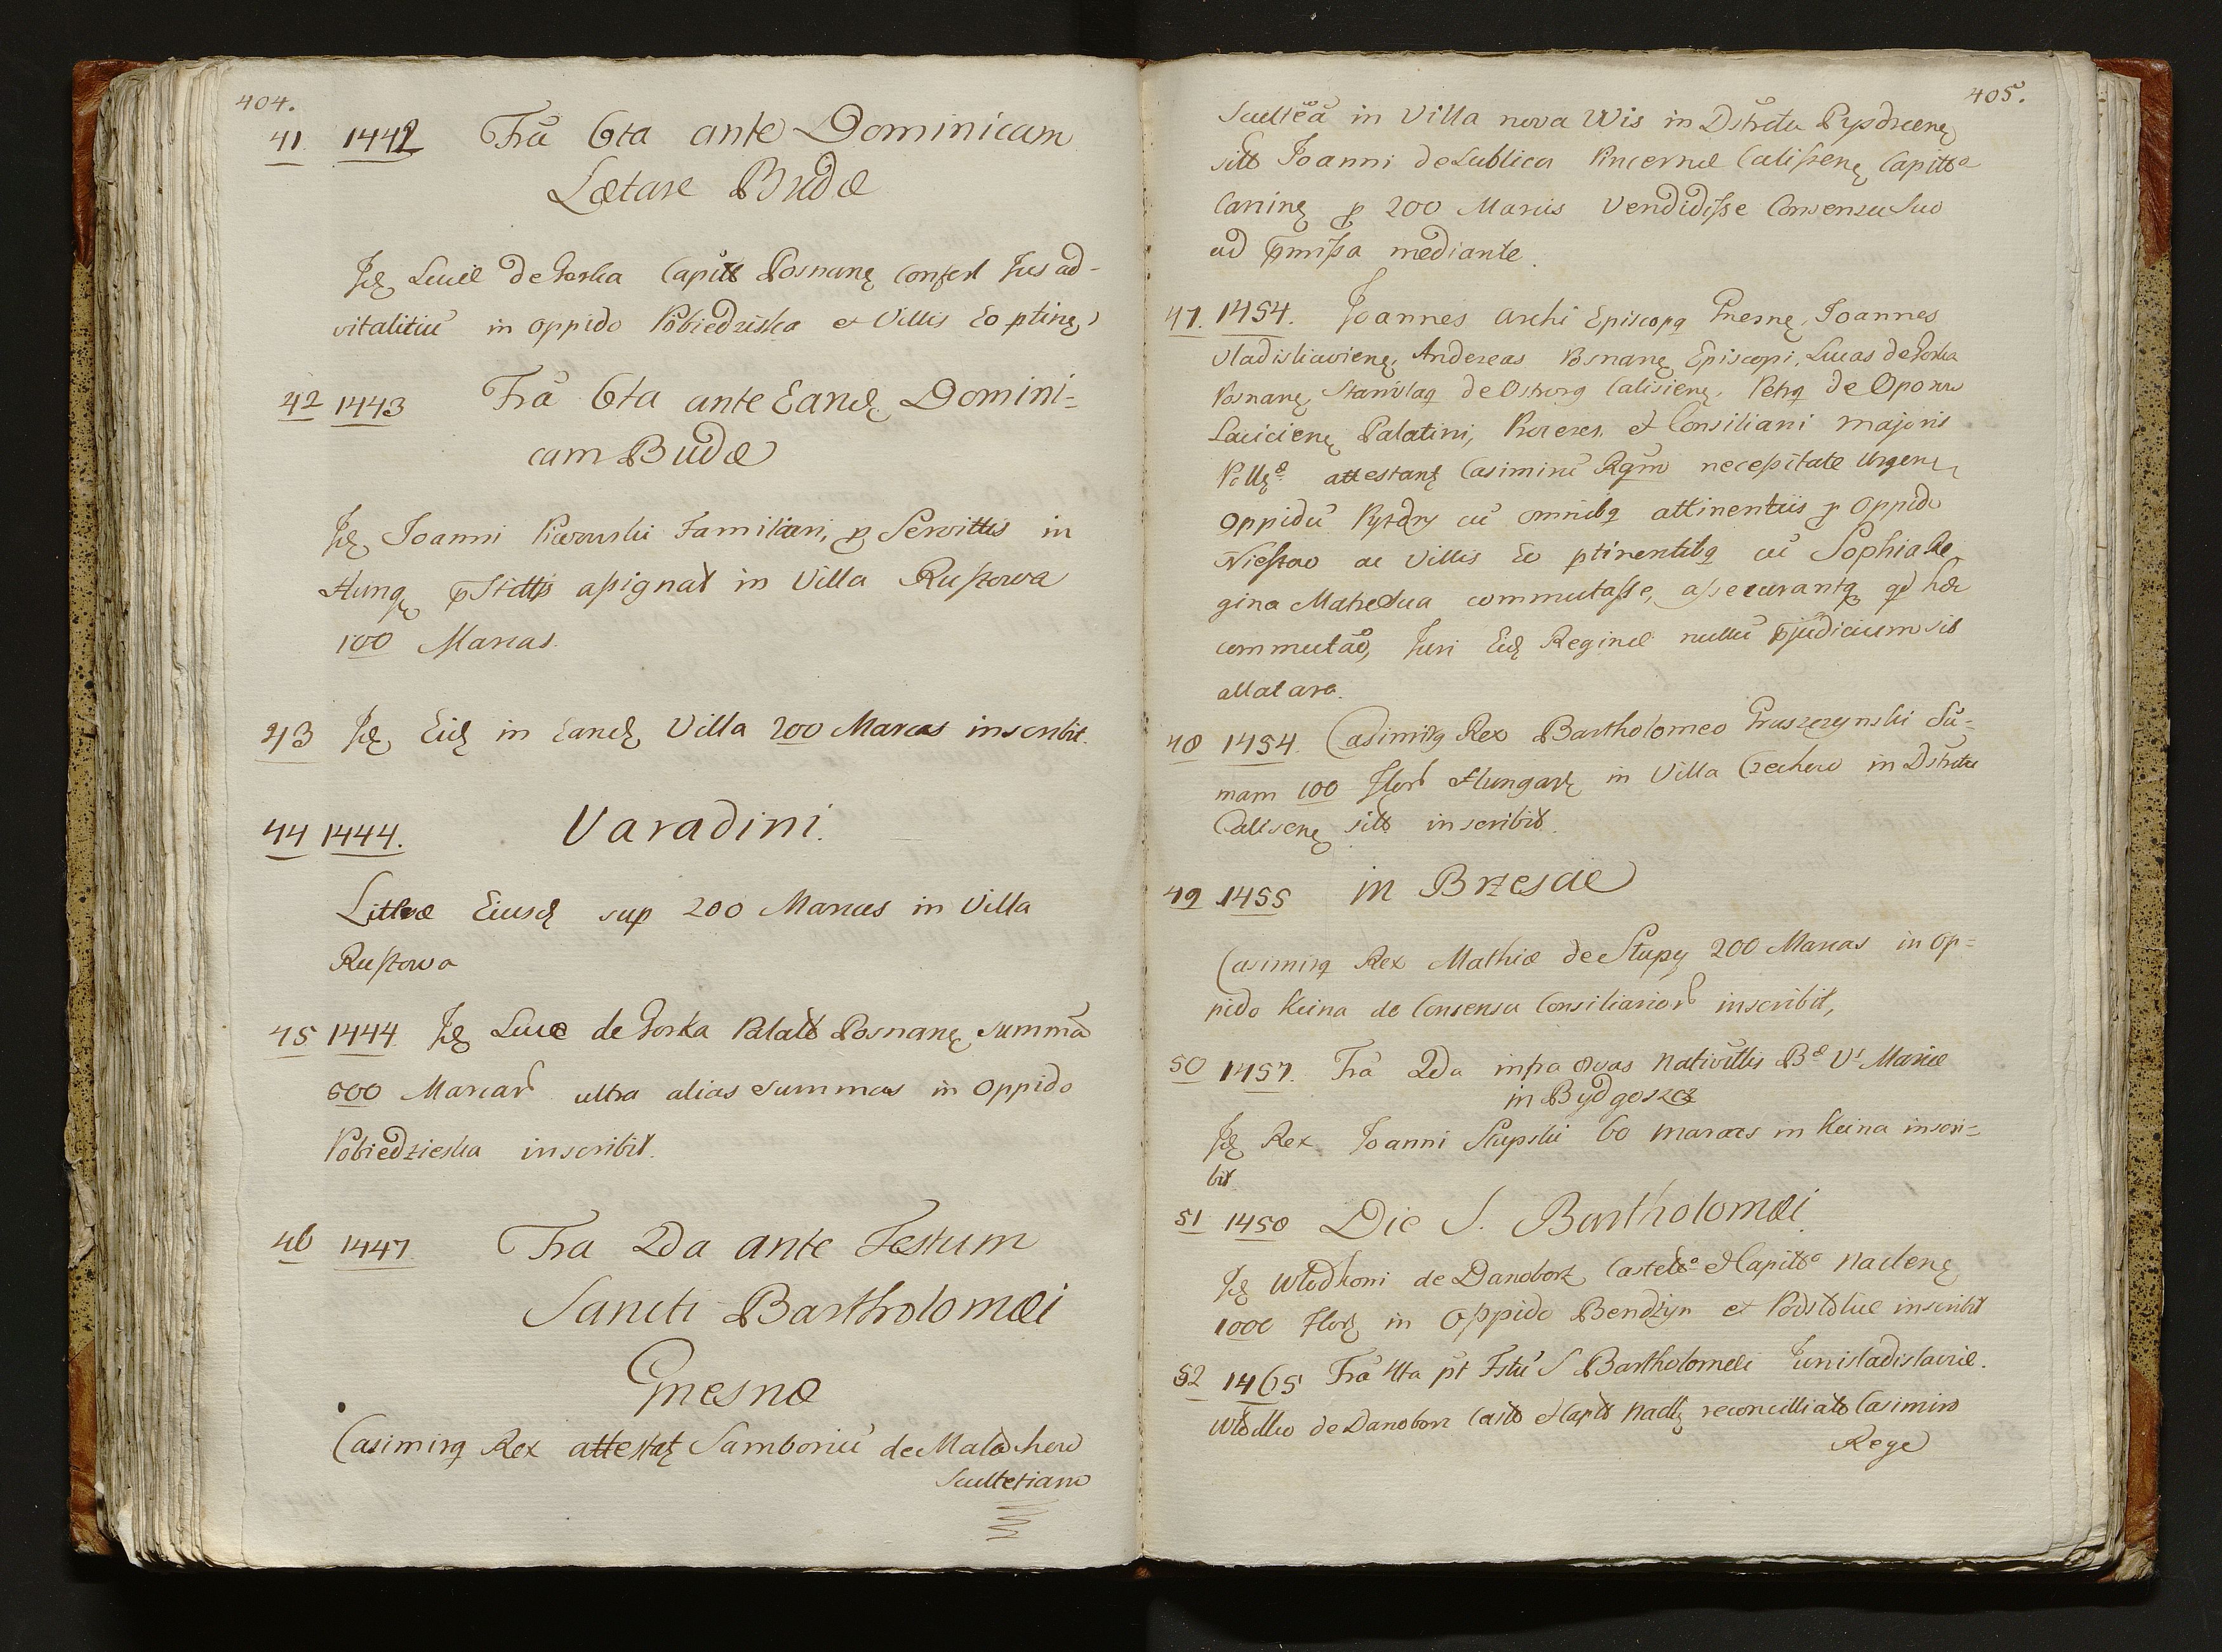 404.
41. 1442 Fra 6ta ante Dominicam
Lætare Budæ
Idȩ Lucæ de Gorka Capitt Posnanȩ confert Jus ad-
vitalitiū in oppido Pobiedziska et Villis Eo ptinȩ
42 1443 Fra 6ta ante Eandȩ Domini=
cam Budæ
Idȩ Joanni Familiari, p Servittis in
Hungȩ pstittis assignat in Villa Rustowa
100 Marcas.
43 Idȩ Eidȩ in Eandȩ Villa 200 Marcas inscribit.
44 1444. Varadini.
Littræ Eiusdȩ sup 200 Marcas in Villa
Rustowa
45 1444 Idȩ Lucæ de Gorka Palatt Posnanȩ summā
500 Marcar ultra alias summas in Oppido
Pobiedzieska inscribit.
46 1447. Fra 2da ante Festum
Sancti Bartholomæi
Gnesnæ
Casimirq Rex attestatȩ Samboriū de Malachow
Scultetiam
405.
Scultēa in Villa nova Wis in Dstrctu Pysdrcenȩ
sitt Joanni de Lublica Pincernæ Calissienȩ Capitto
Caninȩ p 200 Marcis Vendidisse Consensu Suo
ad pmissa mediante.
47. 1454. Joannes Archi Episcopq Gnesnȩ, Joannes
Vladislaviensȩ, Andreas Posnanȩ Episcopi, Lucas de Gorka
Posnanȩ Stanislaq de Ostrorg Calisienȩ, Petrq de Oporow
Lancicienȩ Palatini, Proceres et Consiliarii majoris
Pollȩ attestantȩ Casimirū Regem necessitate Urgenȩ
Oppidū Pyzdry cū omnibq attinentiis p Oppido
Nieszao ac Villis Eo ptinentibq cū Sophia Re
gina Matre Sua commutasse, assecurantq qd hæc
commutāo, Juri Eidȩ Reginæ nullū pjudicium sit
allatara.
48 1454. Casimirq Rex Bartholomeo Gruszczynski Sū=
mam 100 Flor Hungarȩ in Villa Czechow in Dstrctu
Calisenȩ sitt inscribit.
49 1455 in Brzescie
Casimirq Rex Mathiæ de Stupy 200 Marcas in Op=
pido Kcina de Consensu Consiliarior inscribit,
50 1457. Fra 2da infra 8vas Nativittis Bæ Vs Mariæ
in Bydgoszcz
Idȩ Rex Joanni Slupski 60 marcas in Kcina inscri=
bit
51 1458 Die S. Bartholomæi
Idȩ Wlodkoni de Danaborz Castello et Capitto Naclenȩ
1000 Florȩ in Oppido Bendzyn et Podstolice inscribit
52 1465 Fra 4ta pt Fstū S Bartholomæi Junisladislaviæ.
Wlodko de Danaborz Castt et Capitt Naclȩ reconcilliatt Casimiro
Rege